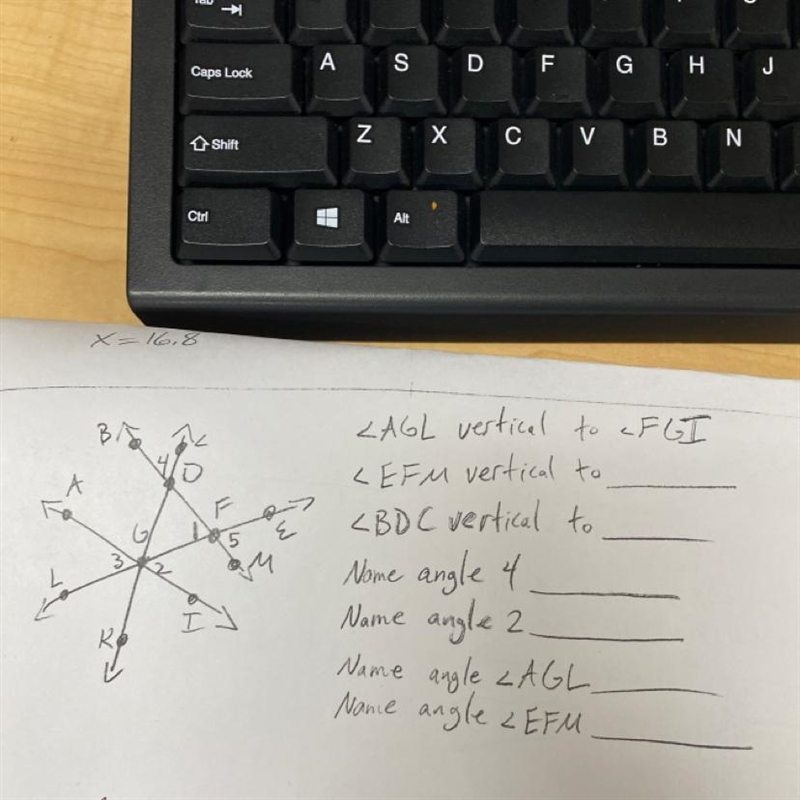 Tab
Caps Lock A S D F G H J
Shift Z X C V B N
Ctrl Alt
x = 16.8
B C
4 D
A
F
G 1 5 E
3 2 M
L
I
K
∠AGL vertical to ∠FGI
∠EFM vertical to ________
∠BDC vertical to ________
Name angle 4 ________
Name angle 2 ________
Name angle ∠AGL ________
Name angle ∠EFM ________